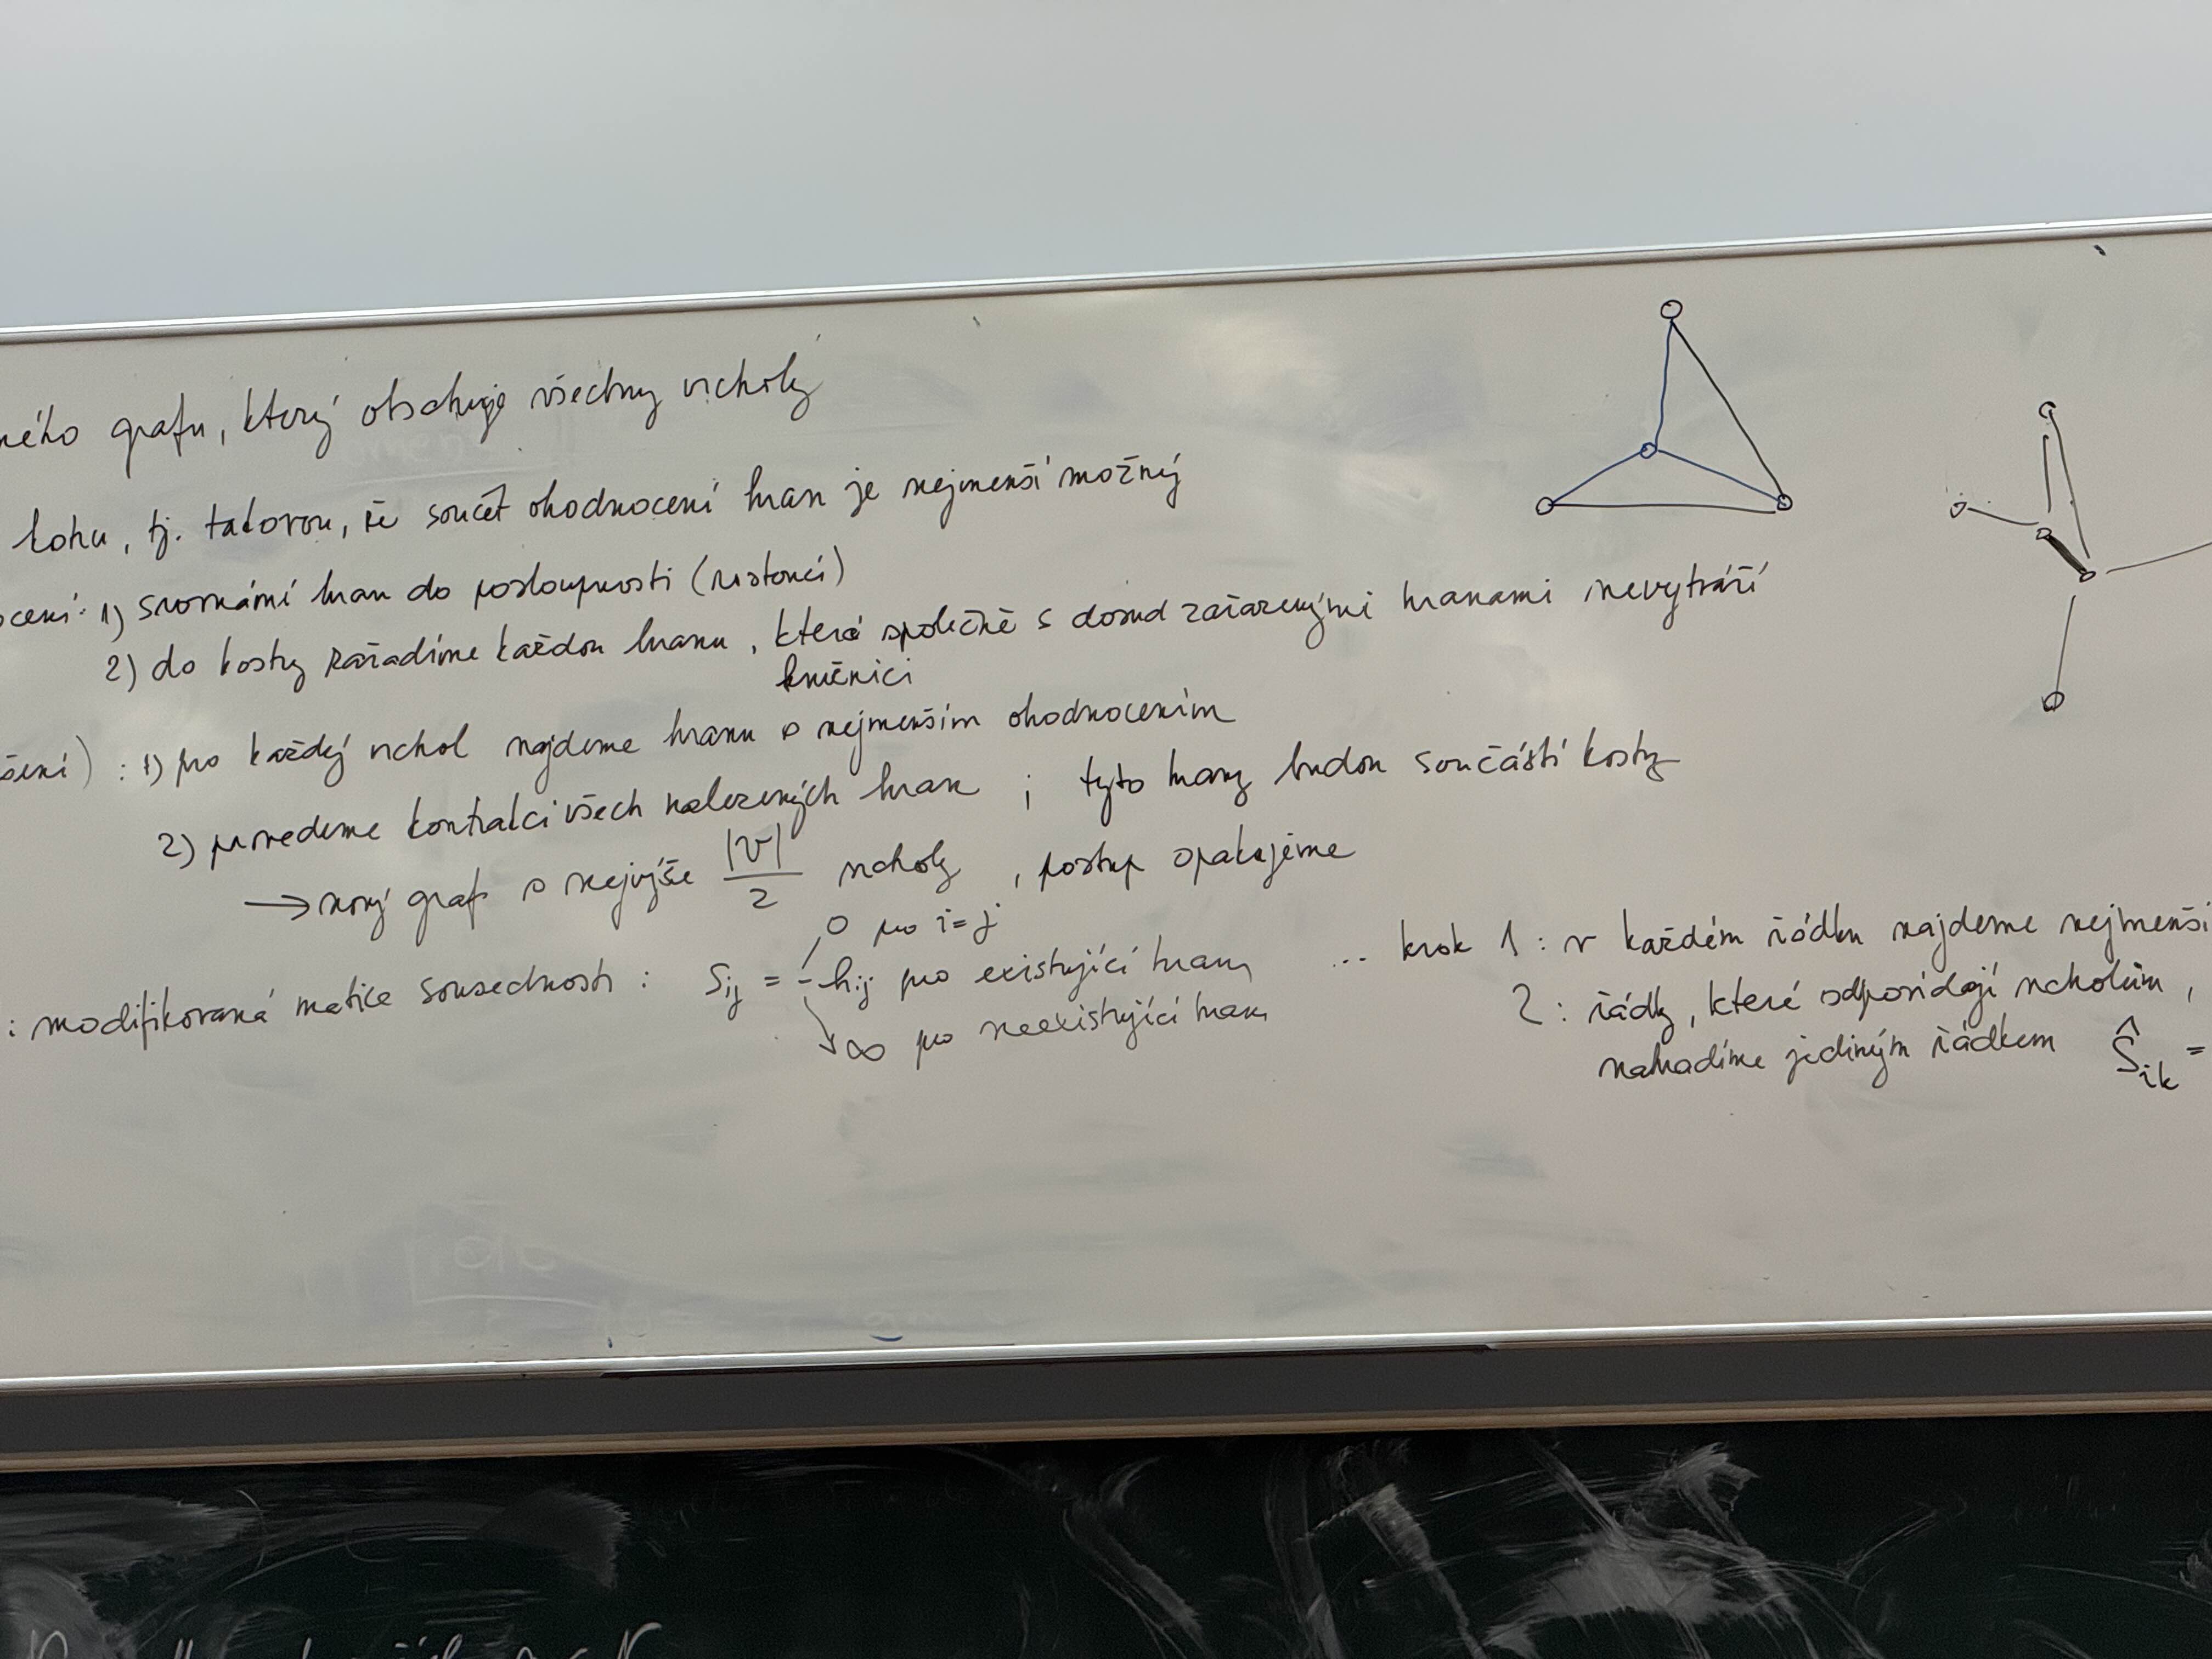 ného grafu, který obsahuje všechny vrcholy
kostru, tj. takovou, že součet ohodnocení hran je nejmenší možný
ocení: 1) srovnání hran do posloupnosti (rostoucí)
2) do kostry zařadíme každou hranu, která společně s dosud zařazenými hranami nevytváří
kružnici
šení) : 1) pro každý vrchol najdeme hranu s nejmenším ohodnocením
2) provedeme kontrakci všech nalezených hran ; tyto hrany budou součástí kostry
→ nový graf s nejvýše |V|/2 vrcholy , postup opakujeme
0 pro i=j
: modifikovaná matice sousednosti : Sij = hij pro existující hranu
∞ pro neexistující hranu
... krok 1 : v každém řádku najdeme nejmenší
2 : řádky, které odpovídají vrcholům ,
nahradíme jediným řádkem Ŝik =